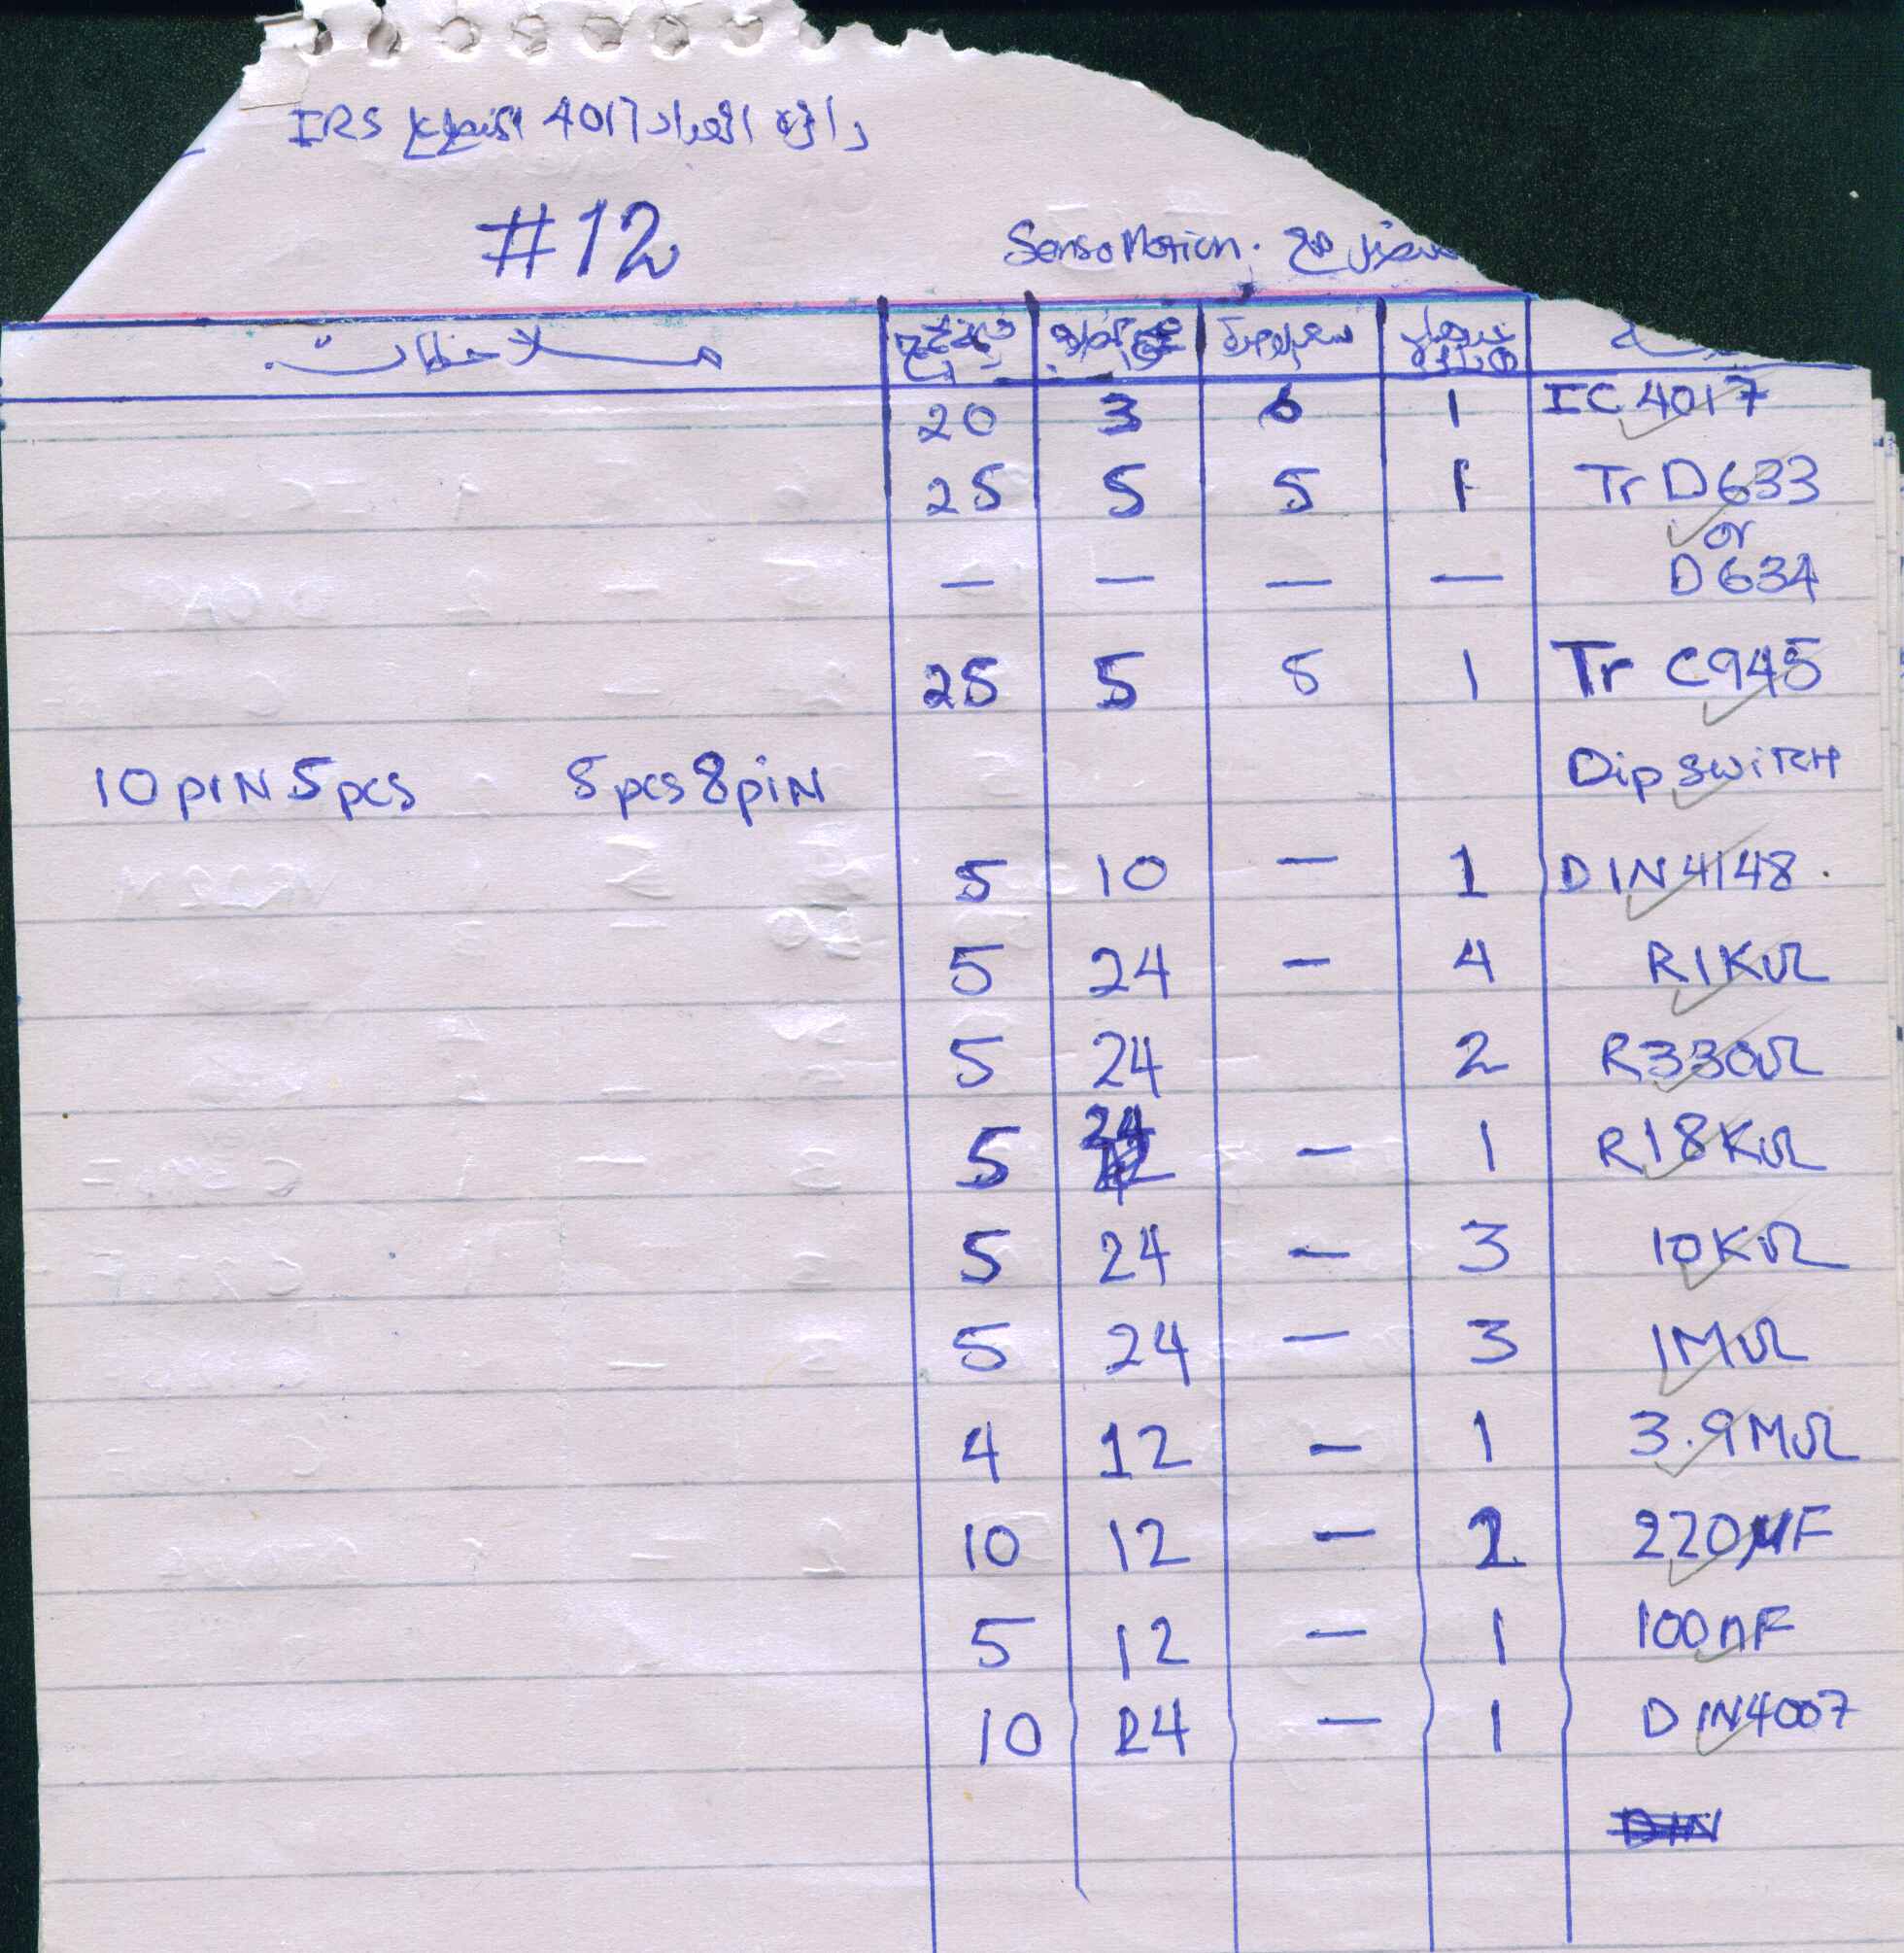 دائرة العداد 4017 IRS
#12
Senso Motion. مع
ملاحظات
سعر الوحدة
IC 4017 1 6 3 20
Tr D633 1 5 5 25
or
D634 — — — —
Tr C945 1 5 5 25
Dip switch 5 pcs 8 piN 10 piN 5 pcs
D IN 4148 . 1 — 10 5
R 1KΩ 4 — 24 5
R330Ω 2 24 5
R18KΩ 1 — 24 5
10KΩ 3 — 24 5
1MΩ 3 — 24 5
3.9MΩ 1 — 12 4
220µF 2 — 12 10
100nF 1 — 12 5
D IN4007 1 — 24 10
DIN